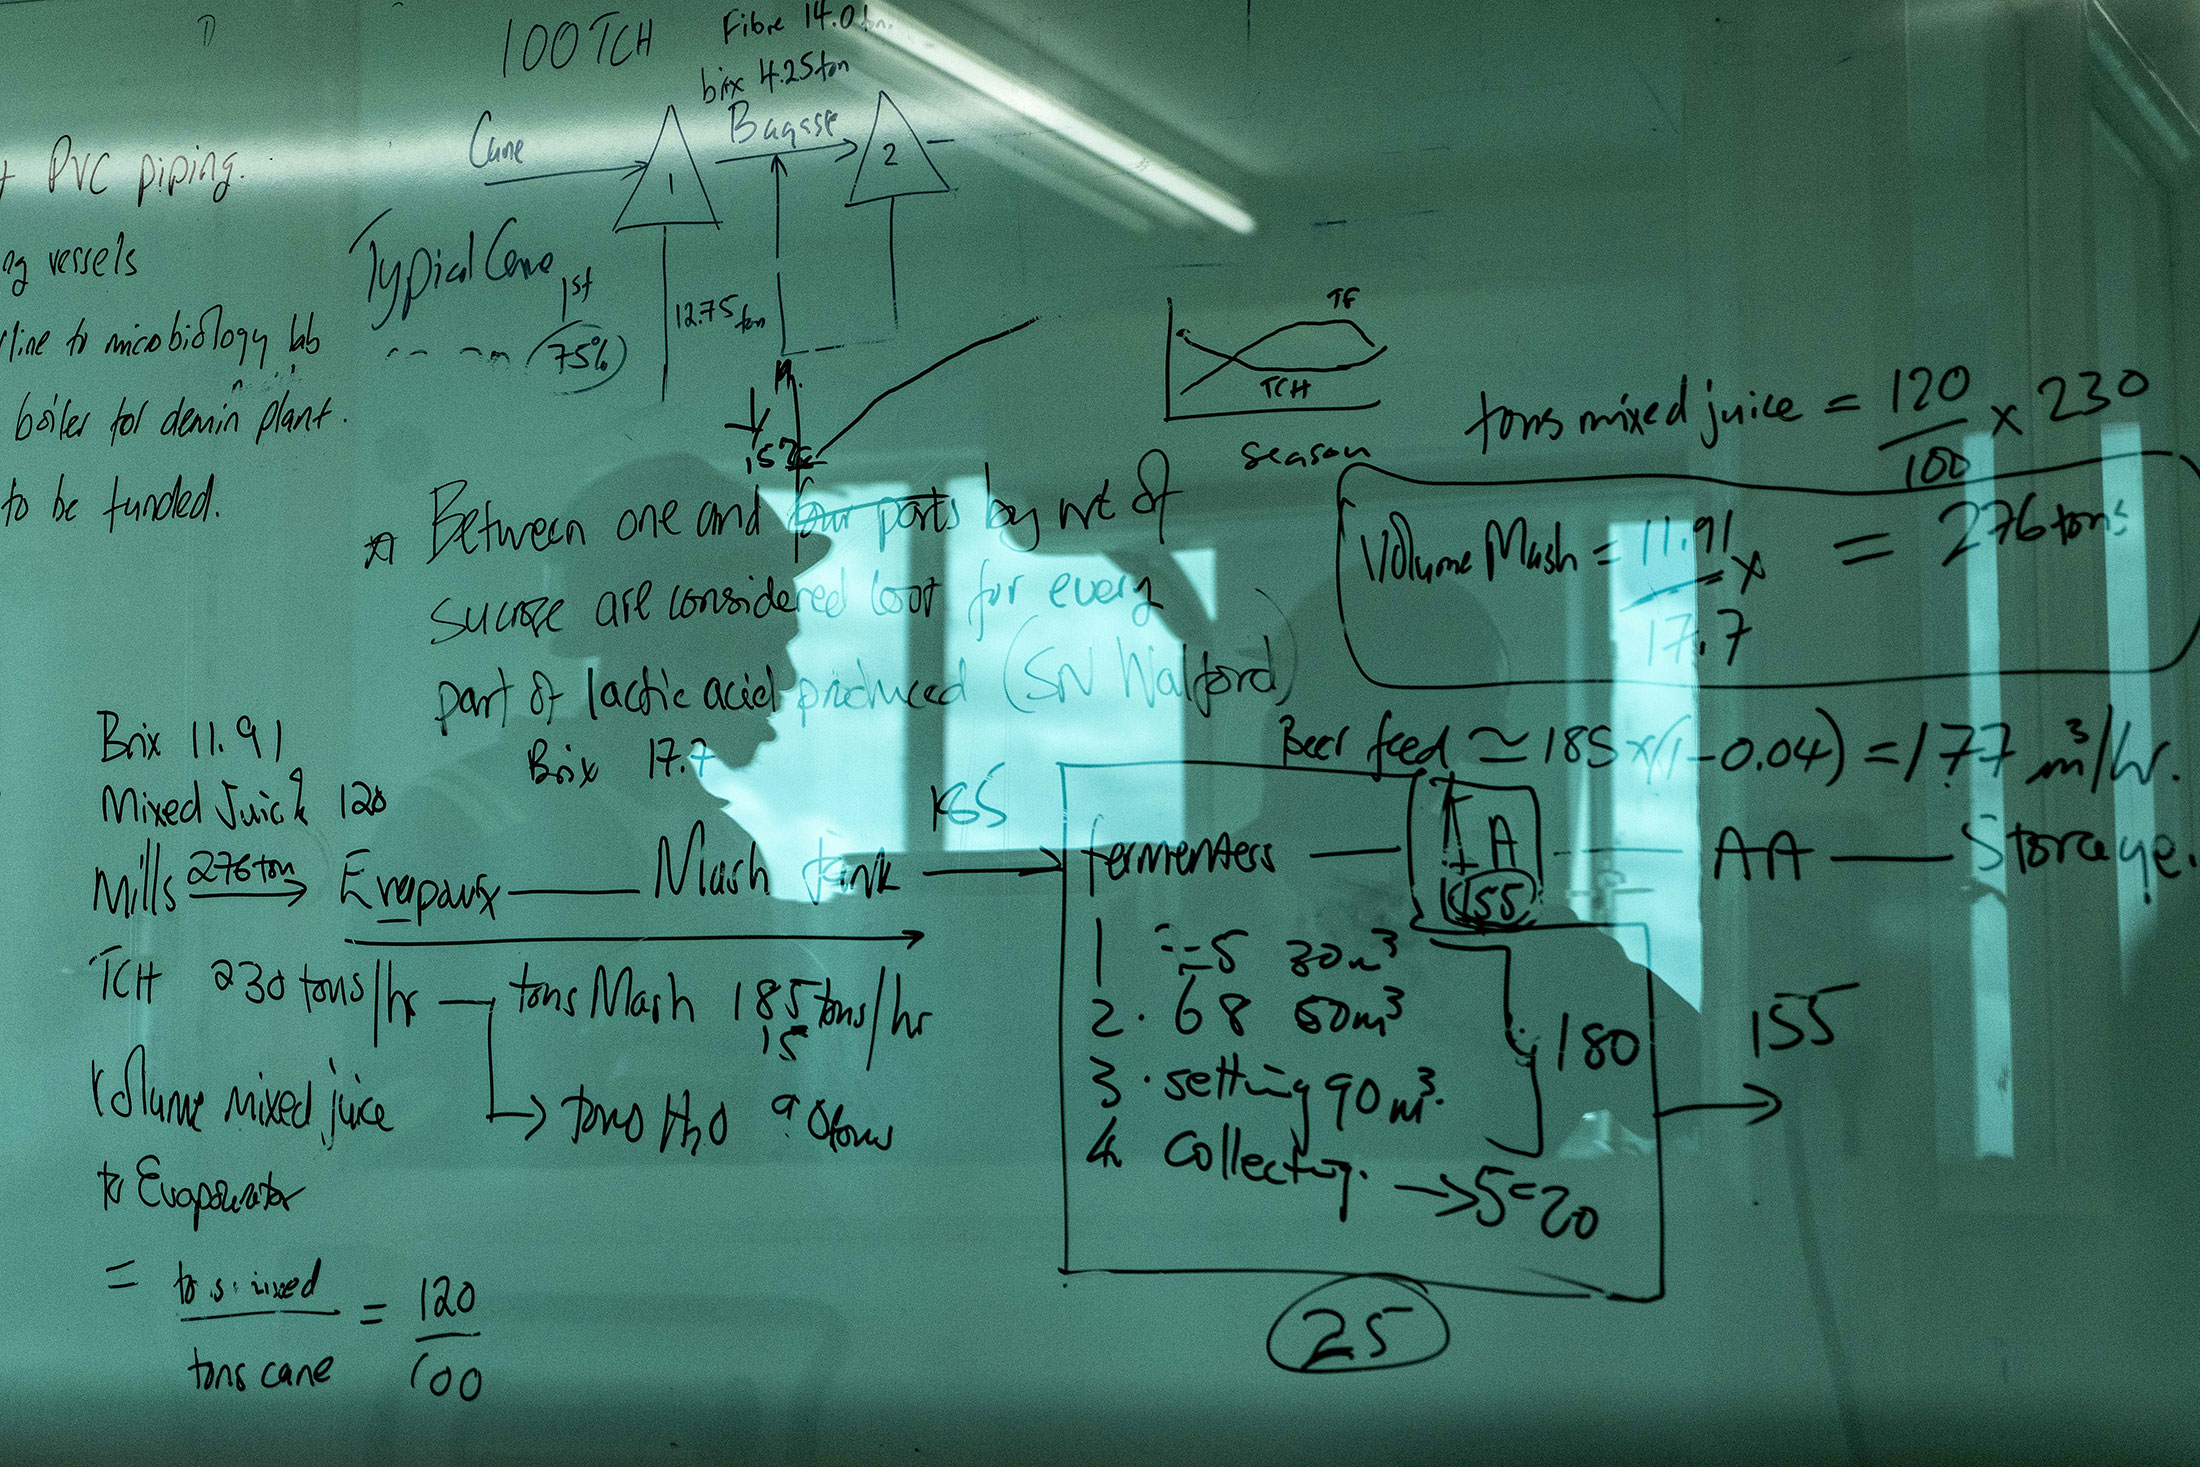 100 TCH
Fibre 14.0 ton
brix 4.25 ton
Bagasse
Cane
1
2
Typical Cane
1st
75%
12.75 ton
PVC piping.
vessels
line to micobiology lab
boiler for demin plant.
to be funded.
TF
TCH
season
* Between one and four parts by wt of
sucrose are considered loot for every
part of lactic acid produced (SN Walford)
tons mixed juice = 120/100 x 230
Volume Mash = 11.91/17.7 x = 276 tons
Beer feed ≃ 185 x (1-0.04) = 177 m³/hr.
Brix 11.91
Mixed Juice 120
Brix 17.7
Mills 276 ton → Evaporx — Mash tank → fermenters — A — AA — Storage.
155
TCH 230 tons/hr — tons Mash 185 tons/hr
15
→ tons H2O 90 tons
Volume mixed juice
to Evaporator
= tons mixed / tons cane = 120/100
1 =-5 30m³
2. 68 50m³
3. setting 90m³.
4. Collecting. → 5=20
180
155
25